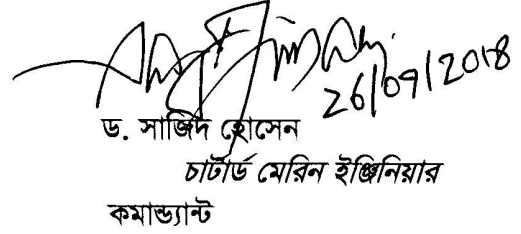 26/09/2018
ড. সাজিদ হোসেন
চার্টার্ড মেরিন ইঞ্জিনিয়ার
কমান্ড্যান্ট